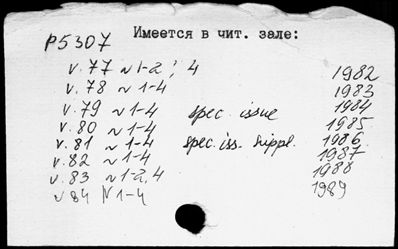 P5307 Имеется в чит. зале:
v. 77 N 1-2; 4 1982
v. 78 N 1-4 1983
v. 79 N 1-4 spec. issue 1984
v. 80 N 1-4 1985
v. 81 N 1-4 spec. iss. suppl. 1986
v. 82 N 1-4 1987
v. 83 N 1-2, 4 1988
v 84 N 1-4 1989